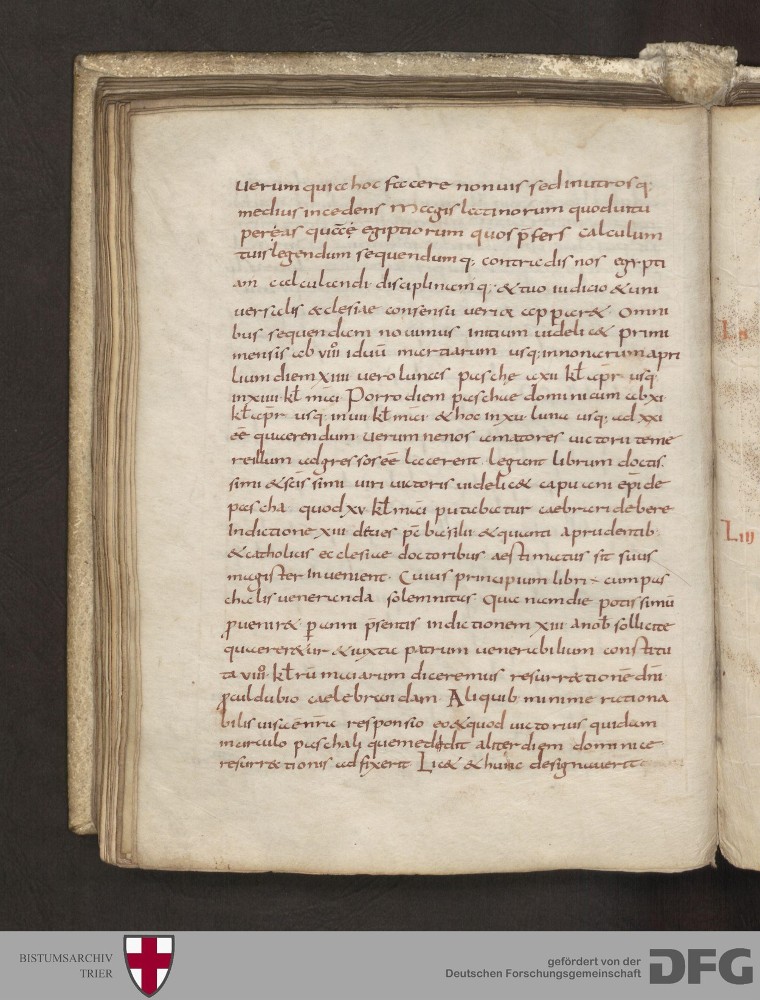 uerum qui a hoc facere non uis sed in utrosq;
medius incedens magis latinorum quod uitu
pereas quā ę egiptiorum quos p̄fers calculum
tuis legendum sequendumq; contradis nos egypti
am calculandi disciplinamq; & tuo iudicio & uni
uersalis &clesiae consensu ueria cop p omni
bus sequendam nouimus initium uidelic& primi
mensis ab viii iduū martiarum usq; in nonarum apri
lium diem xiiii uero lunas pasche a xii kł apr̄ usq
in xiiii kł mai Porro diem paschae dominicum ab xi
kł apr̄ usq in uii kł mai & hoc in xu luna usq; ad xxi
ēē quaerendum uerum ne nos amatores uictorii teme
re illum adgressos ēē lacerent legant librum doctis
simi & sc̄issimi uiri uictoris uidelic& capuani ep̄i de
pascha quod xv kł mai putabatur caebrari debere
Indictione xiii p̄c basilii & quanti a prudentib
& catholicis ecclesiae doctoribus aestimatus sit suis
magister inuenient. Cuius principium libri ÷ cum pas
chalis ueneranda solemnitas Quae nam die potissimū
proueniret p anni p̄sentis indictionem xiii a nob sollicite
quaereretur & iuxta patrum uenerabilium constitu
ta viii kł rū maiarum diceremus resurr&tionē dn̄i
proculdubio caelebrandam Aliquib minime rationa
bilis uisa ē nr̄a responsio eo & quod uictorius quidam
in circulo paschali quem edidit aliter diem dominicae
resurr&tionis adfixerit Lic& & hunc designauerit
BISTUMSARCHIV
TRIER
gefördert von der
Deutschen Forschungsgemeinschaft
DFG